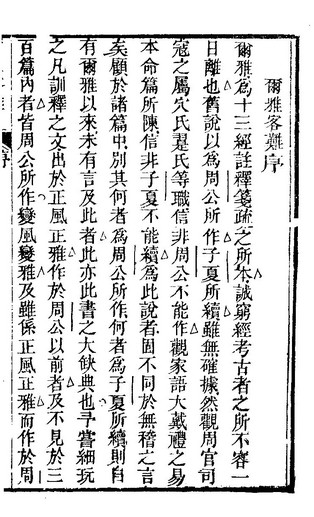 爾雅客難序
爾雅為十三經註釋箋疏之所本誠窮經考古者之所不容一
日離也舊說以為周公所作子夏所續雖無確據然觀周官司
寇之屬穴氏翨氏等職信非周公不能作觀家語大戴禮之易
本命篇所陳信非子夏不能續為此說者固不同於無稽之言
矣顧於諸篇中別其何者為周公所作何者為子夏所續則自
有爾雅以來未有言及此者此亦此書之大缺典也予嘗細玩
之凡訓釋之文出於正風正雅作於周公以前者及不見於三
百篇內者皆周公所作變風變雅及雖係正風正雅而作於周